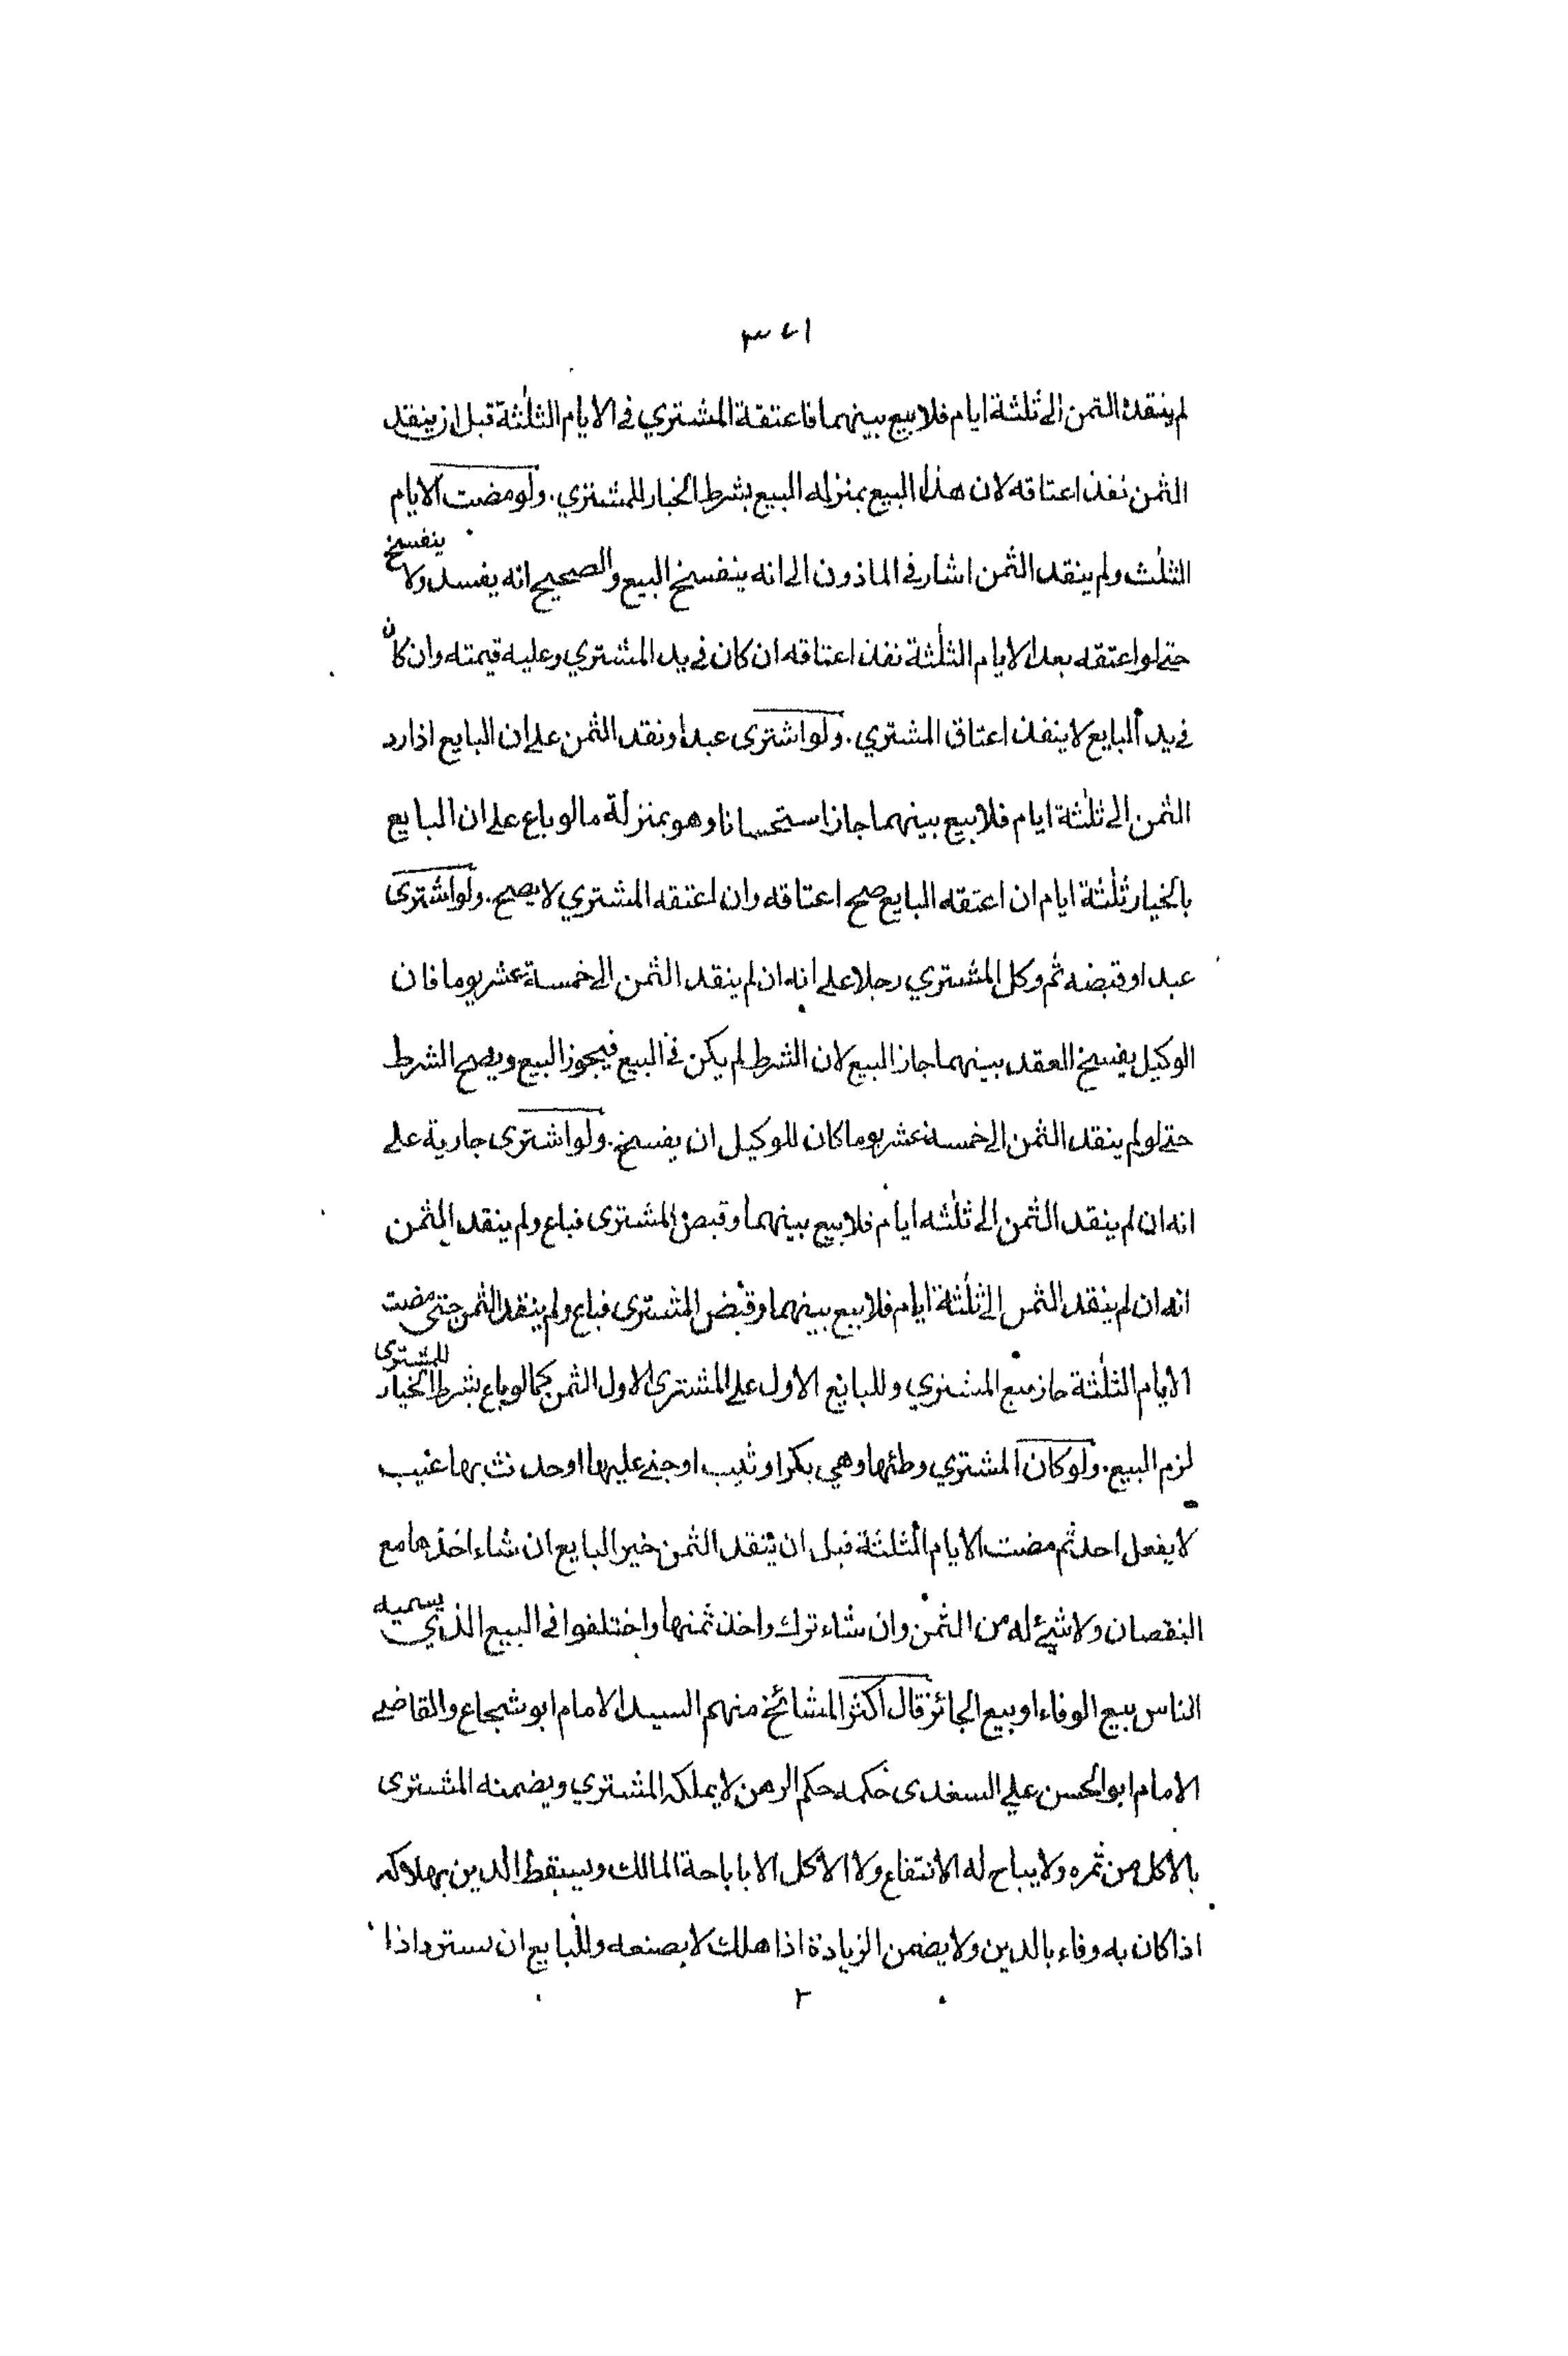 ١٧٣
لم ينقده الثمن الى ثلثة ايام فلا بيع بينهما فاعتقة المشتري في الايام الثلثة قبل ان ينقد
الثمن نفذ اعتاقه لان هذا البيع بمنزله البيع بشرط الخيار للمشتري. ولو مضت الايام
الثلث ولم ينقد الثمن اشار في الماذون الى انه ينفسخ البيع والصحيح انه يفسد ولا ينفسخ
حتى لو اعتقه بعد الايام الثلثة نفذ اعتاقه ان كان في يد المشتري وعليه قيمته وان كان
في يد البايع لا ينفذ اعتاق المشتري. ولو اشترى عبدا ونقد الثمن على ان البايع اذا رد
الثمن الى ثلثة ايام فلا بيع بينهما جاز استحسانا وهو بمنزلة ما لو باع على ان البايع
بالخيار ثلثة ايام ان اعتقه البايع صح اعتاقه وان اعتقه المشتري لا يصح. ولو اشترى
عبدا وقبضه ثم وكل المشتري رجلا على انه ان لم ينقد الثمن الى خمسة عشر يوما فان
الوكيل يفسخ العقد بينهما جاز البيع لان الشرط لم يكن في البيع فيجوز البيع ويصح الشرط
حتى لو لم ينقد الثمن الى خمسة عشر يوما كان للوكيل ان يفسخ. ولو اشترى جارية على
انه ان لم ينقد الثمن الى ثلثه ايام فلا بيع بينهما وقبض المشترى فباع ولم ينقد الثمن
انه ان لم ينقد الثمن الى ثلثة ايام فلا بيع بينهما وقبض المشترى فباع ولم ينقد الثمن حتى مضت
الايام الثلثة جاز بيع المشتري وللبايع الاول على المشترى الاول الثمن كما لو باع بشرط الخيار للمشترى
لزم البيع. ولو كان المشتري وطئها وهي بكر او ثيب او جنى عليها او حدث بها عيب
لا يفعل احد ثم مضت الايام الثلثة قبل ان ينقد الثمن خير البايع ان شاء اخذها مع
النقصان ولا شيئ له من الثمن وان شاء ترك واخذ ثمنها واختلفوا في البيع الذي يسميه
الناس بيع الوفاء او بيع الجائز قال اكثر المشائخ منهم السيد الامام ابو شجاع والقاضي
الامام ابو الحسن علي السغدى حكمه حكم الرهن لا يملكه المشتري ويضمنه المشترى
بالاكل من ثمره ولا يباح له الانتفاع ولا الاكل الا باباحة المالك ويسقط الدين بهلاكه
اذا كان به وفاء بالدين ولا يضمن الزيادة اذا هلك لا بصنعه وللبايع ان يسترد اذا
٢